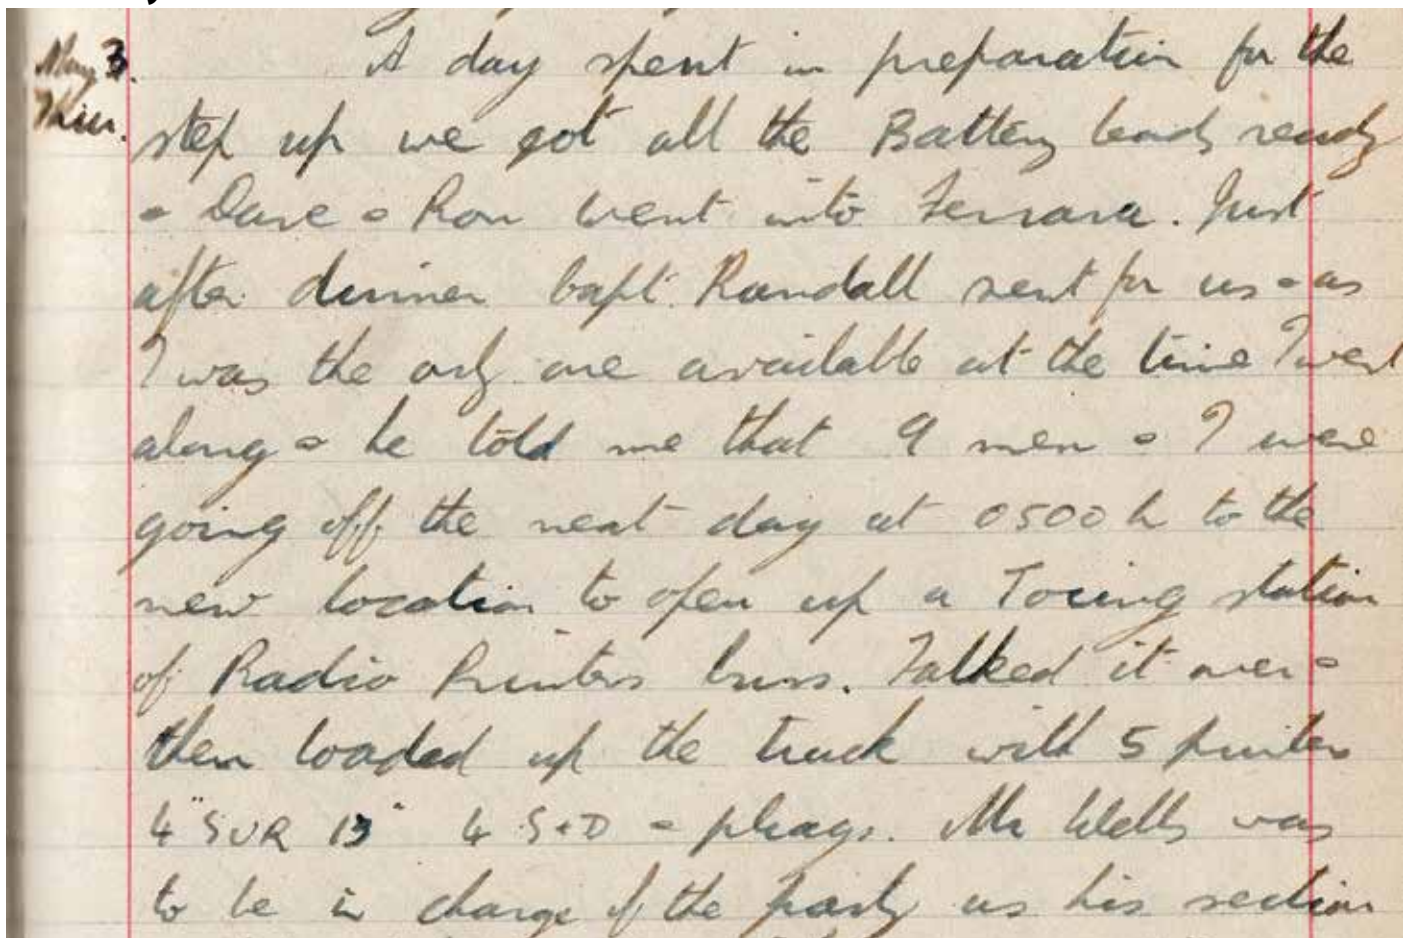 May 3. A day spent in preparation for the
Thur. step up we got all the Battery leads ready
& Dave & Ron went into Ferrara. Just
after dinner Capt. Randall sent for us & as
I was the only one available at the time I went
along & he told me that 9 men & I were
going off the next day at 0500 h to the
new location to open up a Toeing station
of Radio Printers. Talked it over &
then loaded up the truck with 5 printers
4 "SVR 13" 4 S+D & plugs. Mr Wells was
to be in charge of the party as his section